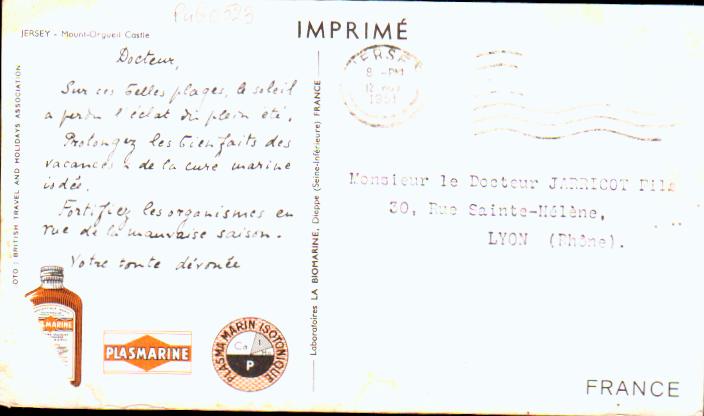 PUB0323
JERSEY - Mount-Orgueil Castle
IMPRIMÉ
Docteur,
Sur ces belles plages, le soleil
a perdu l'éclat du plein été.
Prolongez les bienfaits des
vacances de la cure marine
iodée.
Fortifiez les organismes en
vue de la mauvaise saison.
Votre toute dévouée
OTO : BRITISH TRAVEL AND HOLIDAYS ASSOCIATION
Laboratoires LA BIOMARINE, Dieppe (Seine-Inférieure) FRANCE
JERSEY
8 - PM
12
1951
Monsieur le Docteur JARRICOT Fils
30, Rue Sainte-Hélène,
LYON (Rhône).
PLASMARINE
PLASMARINE
PLASMA MARIN ISOTONIQUE
Ca I
P
FRANCE